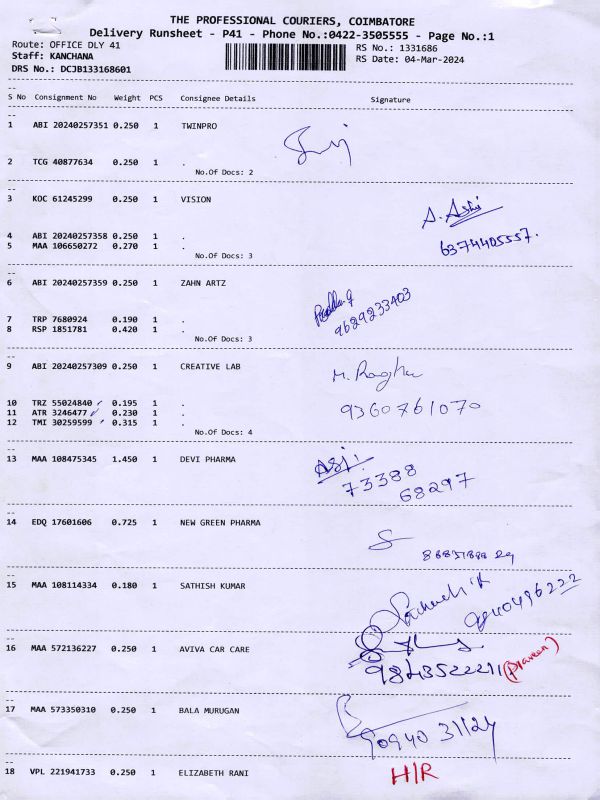 THE PROFESSIONAL COURIERS, COIMBATORE
Delivery Runsheet - P41 - Phone No.:0422-3505555 - Page No.:1
Route: OFFICE DLY 41
RS No.: 1331686
Staff: KANCHANA
RS Date: 04-Mar-2024
DRS No.: DCJB133168601
S No Consignment No Weight PCS Consignee Details Signature
1 ABI 20240257351 0.250 1 TWINPRO
2 TCG 40877634 0.250 1 .
No.Of Docs: 2
3 KOC 61245299 0.250 1 VISION
A. Ashi
4 ABI 20240257358 0.250 1 .
6374405557.
5 MAA 106650272 0.270 1 .
No.Of Docs: 3
6 ABI 20240257359 0.250 1 ZAHN ARTZ
7 TRP 7680924 0.190 1 .
9629233403
8 RSP 1851781 0.420 1 .
No.Of Docs: 3
9 ABI 20240257309 0.250 1 CREATIVE LAB
M. Raghu
10 TRZ 55024840 0.195 1 .
9360761070
11 ATR 3246477 0.230 1 .
12 TMI 30259599 0.315 1 .
No.Of Docs: 4
13 MAA 108475345 1.450 1 DEVI PHARMA
73388
68297
14 EDQ 17601606 0.725 1 NEW GREEN PHARMA
15 MAA 108114334 0.180 1 SATHISH KUMAR
9840496222
16 MAA 572136227 0.250 1 AVIVA CAR CARE
(Praveen)
17 MAA 573350310 0.250 1 BALA MURUGAN
90940 31124
18 VPL 221941733 0.250 1 ELIZABETH RANI
H/R